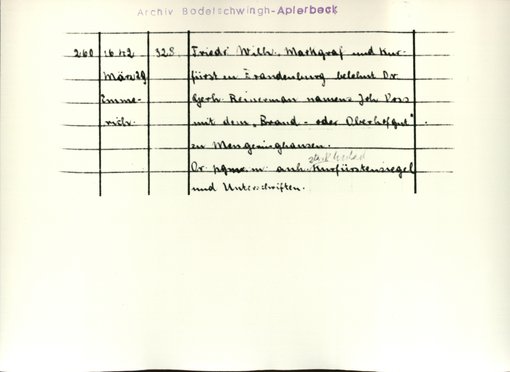 Archiv Bodelschwingh-Aplerbeck
260 1642 328. Friedr. Wilh., Markgraf und Kur-
März 29 fürst zu Brandenburg belehnt Dr.
Emme- Gerh. Reinerman namens Joh. Voss
rich. mit dem "Brand- oder Oberhofgut"
zu Mengeringhausen.
Or. pgmt. m. anh. Kurfürstensiegel
und Unterschriften.